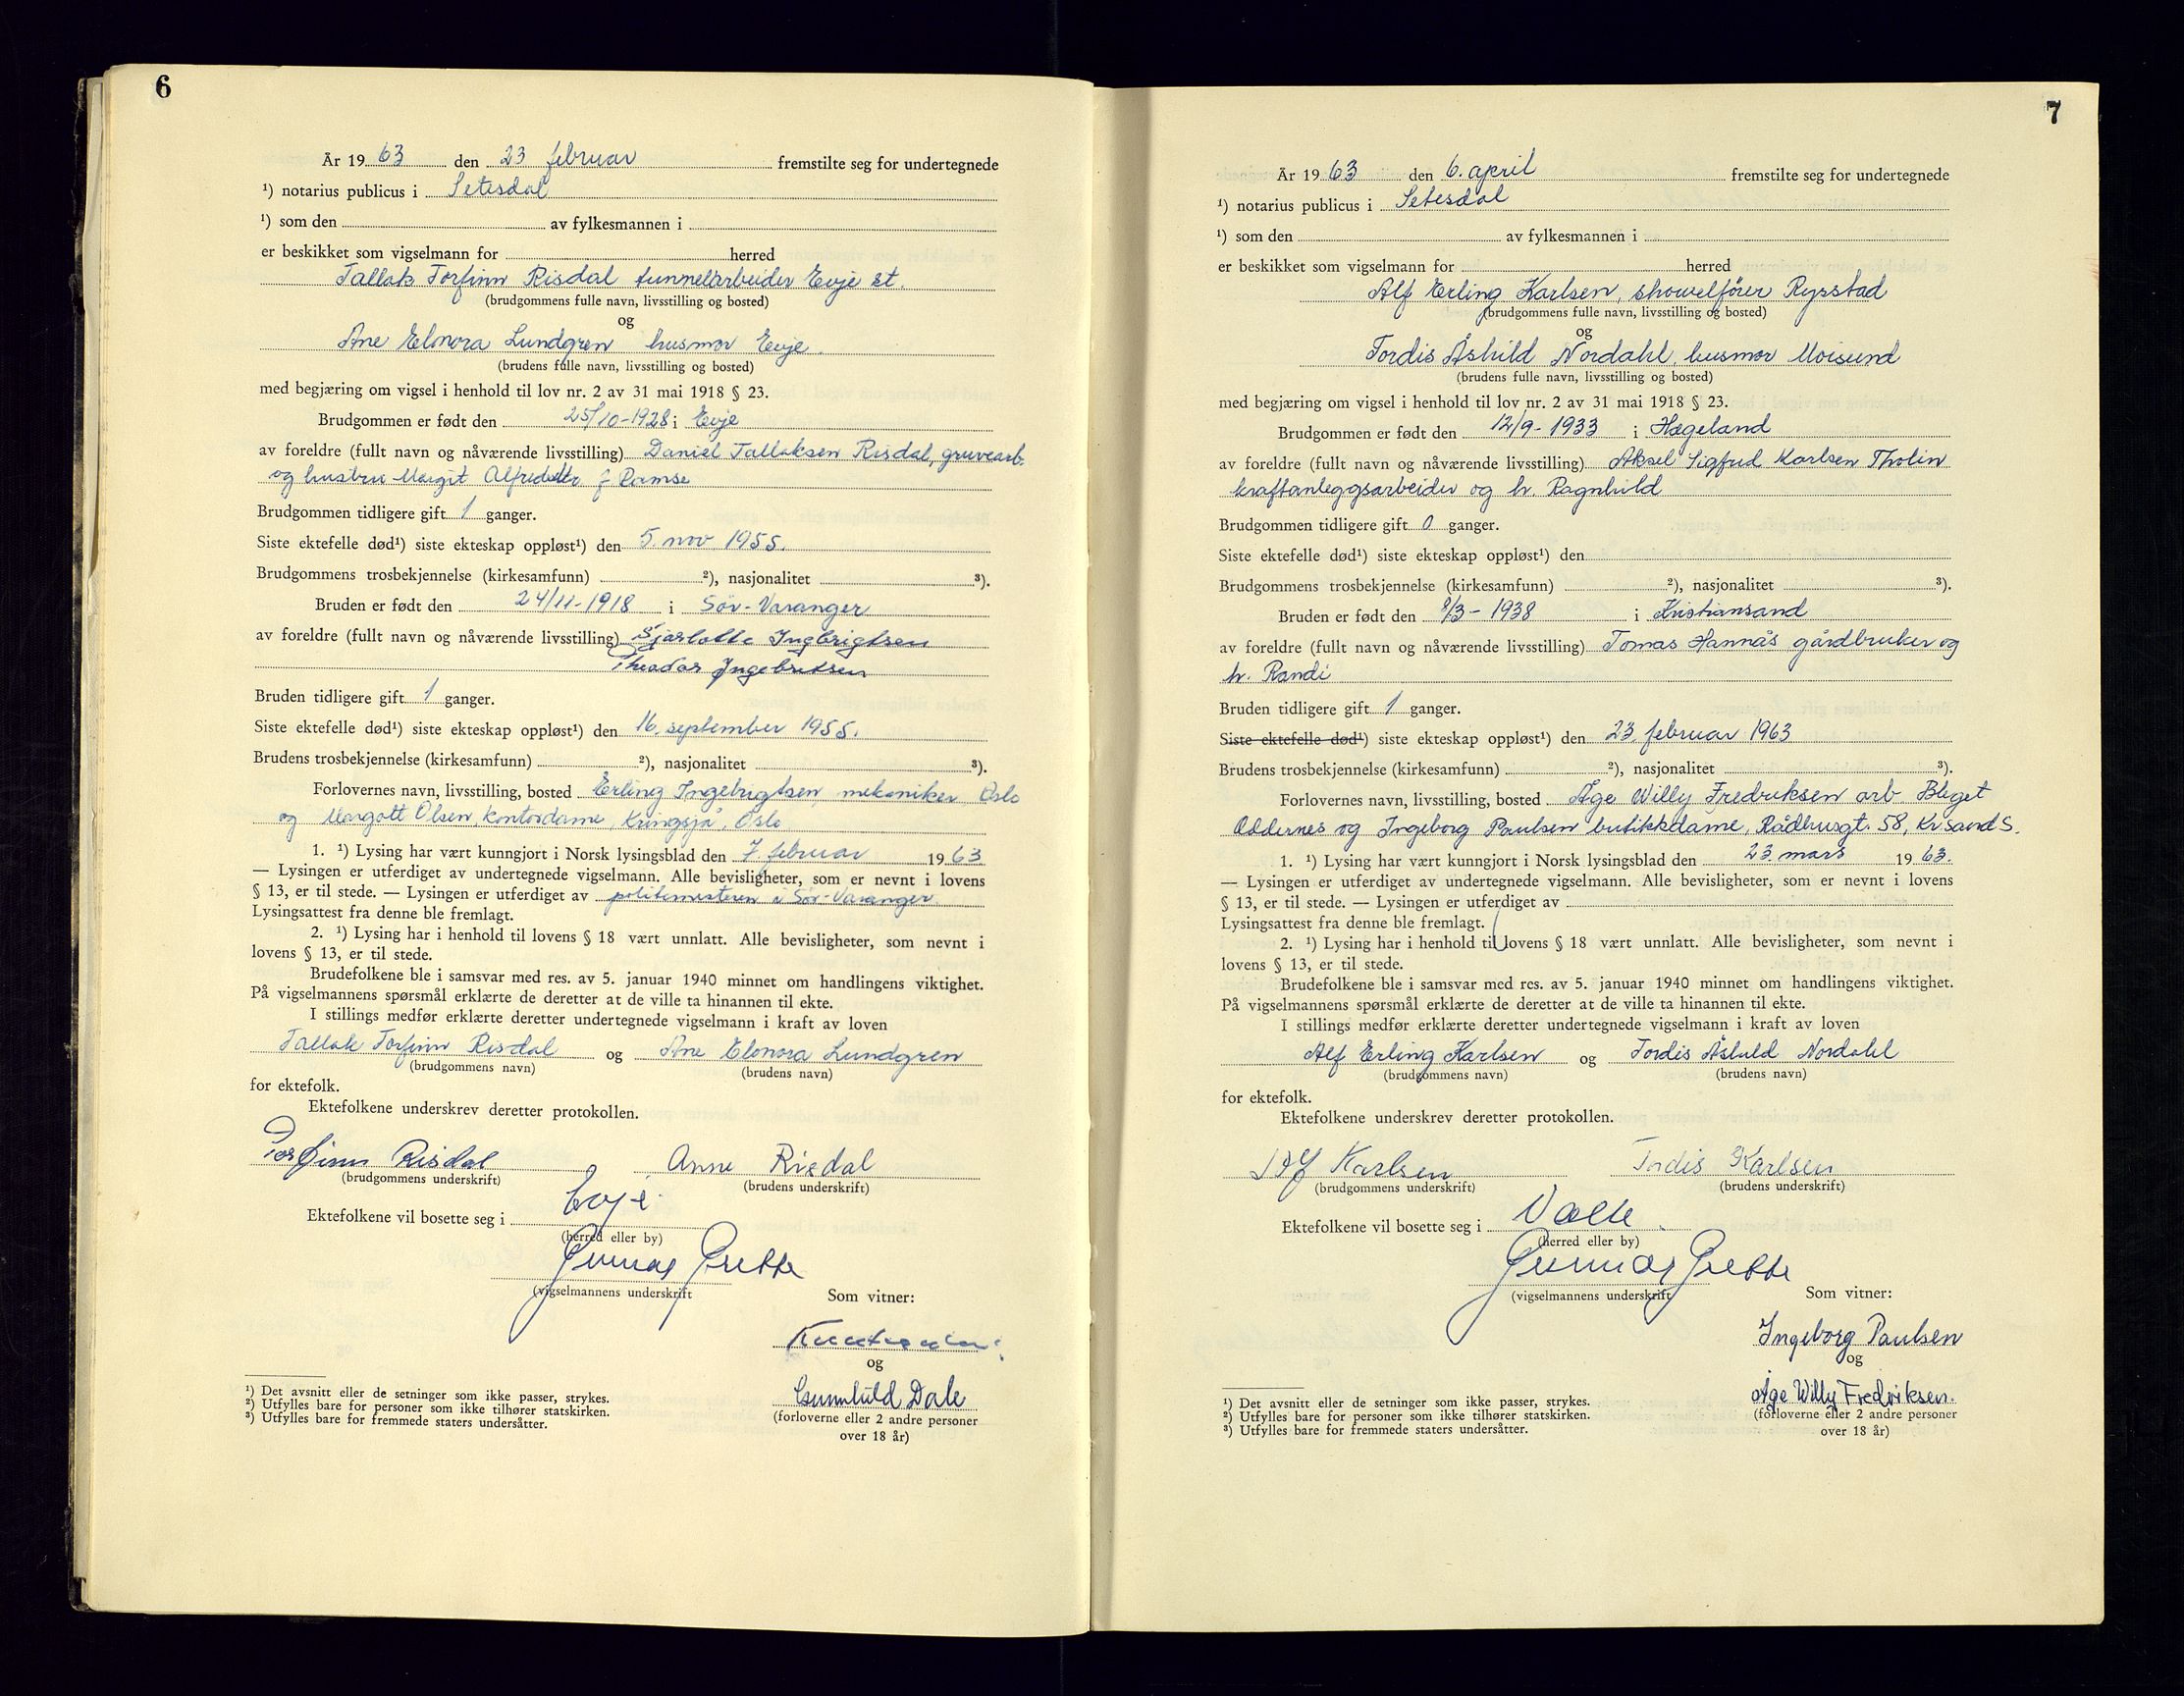 6
År 19 63 den 23 februar fremstilte seg for undertegnede
¹) notarius publicus i Setesdal
¹) som den av fylkesmannen i
er beskikket som vigselmann for herred
Tallak Torfinn Risdal tunnelarbeider Evje st.
(brudgommens fulle navn, livsstilling og bosted)
og
Ane Elonora Lundgren husmor Evje.
(brudens fulle navn, livsstilling og bosted)
med begjæring om vigsel i henhold til lov nr. 2 av 31 mai 1918 § 23.
Brudgommen er født den 25/10-1928 i Evje
av foreldre (fullt navn og nåværende livsstilling) Daniel Tallaksen Risdal, gruvearb.
og hustru Margit f Ramse
Brudgommen tidligere gift 1 ganger.
Siste ektefelle død¹) siste ekteskap oppløst¹) den 5. nov 1955.
Brudgommens trosbekjennelse (kirkesamfunn) ²), nasjonalitet ³).
Bruden er født den 24/11-1918 i Sör-Varanger
av foreldre (fullt navn og nåværende livsstilling) Sjarlotte Ingbrigtsen
Theodor Ingebriktsen
Bruden tidligere gift 1 ganger.
Siste ektefelle død¹) siste ekteskap oppløst¹) den 16. september 1955.
Brudens trosbekjennelse (kirkesamfunn) ²), nasjonalitet ³).
Forlovernes navn, livsstilling, bosted Erling Ingebrigtsen mekaniker Oslo
og Margott Olsen, kontordame, Kringsjå, Oslo
1. ¹) Lysing har vært kunngjort i Norsk lysingsblad den 7. februar 19 63
— Lysingen er utferdiget av undertegnede vigselmann. Alle bevisligheter, som er nevnt i lovens
§ 13, er til stede. — Lysingen er utferdiget av politimesteren i Sör-Varanger
Lysingsattest fra denne ble fremlagt.
2. ¹) Lysing har i henhold til lovens § 18 vært unnlatt. Alle bevisligheter, som nevnt i
lovens § 13, er til stede.
Brudefolkene ble i samsvar med res. av 5. januar 1940 minnet om handlingens viktighet.
På vigselmannens spørsmål erklærte de deretter at de ville ta hinannen til ekte.
I stillings medfør erklærte deretter undertegnede vigselmann i kraft av loven
Tallak Torfinn Risdal og Ane Elonora Lundgren
(brudgommens navn) (brudens navn)
for ektefolk.
Ektefolkene underskrev deretter protokollen.
Torfinn Risdal Anne Risdal
(brudgommens underskrift) (brudens underskrift)
Ektefolkene vil bosette seg i Evje
(herred eller by)
Gunnar Grette
(vigselmannens underskrift
Som vitner:
og
Gunnhild Dale
(forloverne eller 2 andre personer
over 18 år)
¹) Det avsnitt eller de setninger som ikke passer, strykes.
²) Utfylles bare for personer som ikke tilhører statskirken.
³) Utfylles bare for fremmede staters undersåtter.
7
År 19 63 den 6. april fremstilte seg for undertegnede
¹) notarius publicus i Setesdal
¹) som den av fylkesmannen i
er beskikket som vigselmann for herred
Alf Erling Karlsen, showelfører Rysstad
(brudgommens fulle navn, livsstilling og bosted)
og
Tordis Åshild Nordahl, husmor Moisund
(brudens fulle navn, livsstilling og bosted)
med begjæring om vigsel i henhold til lov nr. 2 av 31 mai 1918 § 23.
Brudgommen er født den 12/9-1933 i Hægeland
av foreldre (fullt navn og nåværende livsstilling) Aksel Sigfred Karlsen Tholin
kraftanleggsarbeider og h. Ragnhild
Brudgommen tidligere gift 0 ganger.
Siste ektefelle død¹) siste ekteskap oppløst¹) den
Brudgommens trosbekjennelse (kirkesamfunn) ²), nasjonalitet ³).
Bruden er født den 8/3-1938 i Kristiansand
av foreldre (fullt navn og nåværende livsstilling) Tomas Hannås gårdbruker og
h. Randi
Bruden tidligere gift 1 ganger.
Siste ektefelle død¹) siste ekteskap oppløst¹) den 23. februar 1963
Brudens trosbekjennelse (kirkesamfunn) ²), nasjonalitet ³).
Forlovernes navn, livsstilling, bosted Åge Willy Fredriksen arb
Oddernes og Ingeborg Paulsen butikkdame, Rådhusgt. 58, Kr.sand S.
1. ¹) Lysing har vært kunngjort i Norsk lysingsblad den 23. mars 19 63.
— Lysingen er utferdiget av undertegnede vigselmann. Alle bevisligheter, som er nevnt i lovens
§ 13, er til stede. — Lysingen er utferdiget av
Lysingsattest fra denne ble fremlagt.
2. ¹) Lysing har i henhold til lovens § 18 vært unnlatt. Alle bevisligheter, som nevnt i
lovens § 13, er til stede.
Brudefolkene ble i samsvar med res. av 5. januar 1940 minnet om handlingens viktighet.
På vigselmannens spørsmål erklærte de deretter at de ville ta hinannen til ekte.
I stillings medfør erklærte deretter undertegnede vigselmann i kraft av loven
Alf Erling Karlsen og Tordis Åshild Nordahl
(brudgommens navn) (brudens navn)
for ektefolk.
Ektefolkene underskrev deretter protokollen.
Alf Karlsen Tordis Karlsen
(brudgommens underskrift) (brudens underskrift)
Ektefolkene vil bosette seg i Valle.
(herred eller by)
Gunnar Grette
(vigselmannens underskrift
Som vitner:
Ingeborg Paulsen
og
Åge Willy Fredriksen.
(forloverne eller 2 andre personer
over 18 år)
¹) Det avsnitt eller de setninger som ikke passer, strykes.
²) Utfylles bare for personer som ikke tilhører statskirken.
³) Utfylles bare for fremmede staters undersåtter.